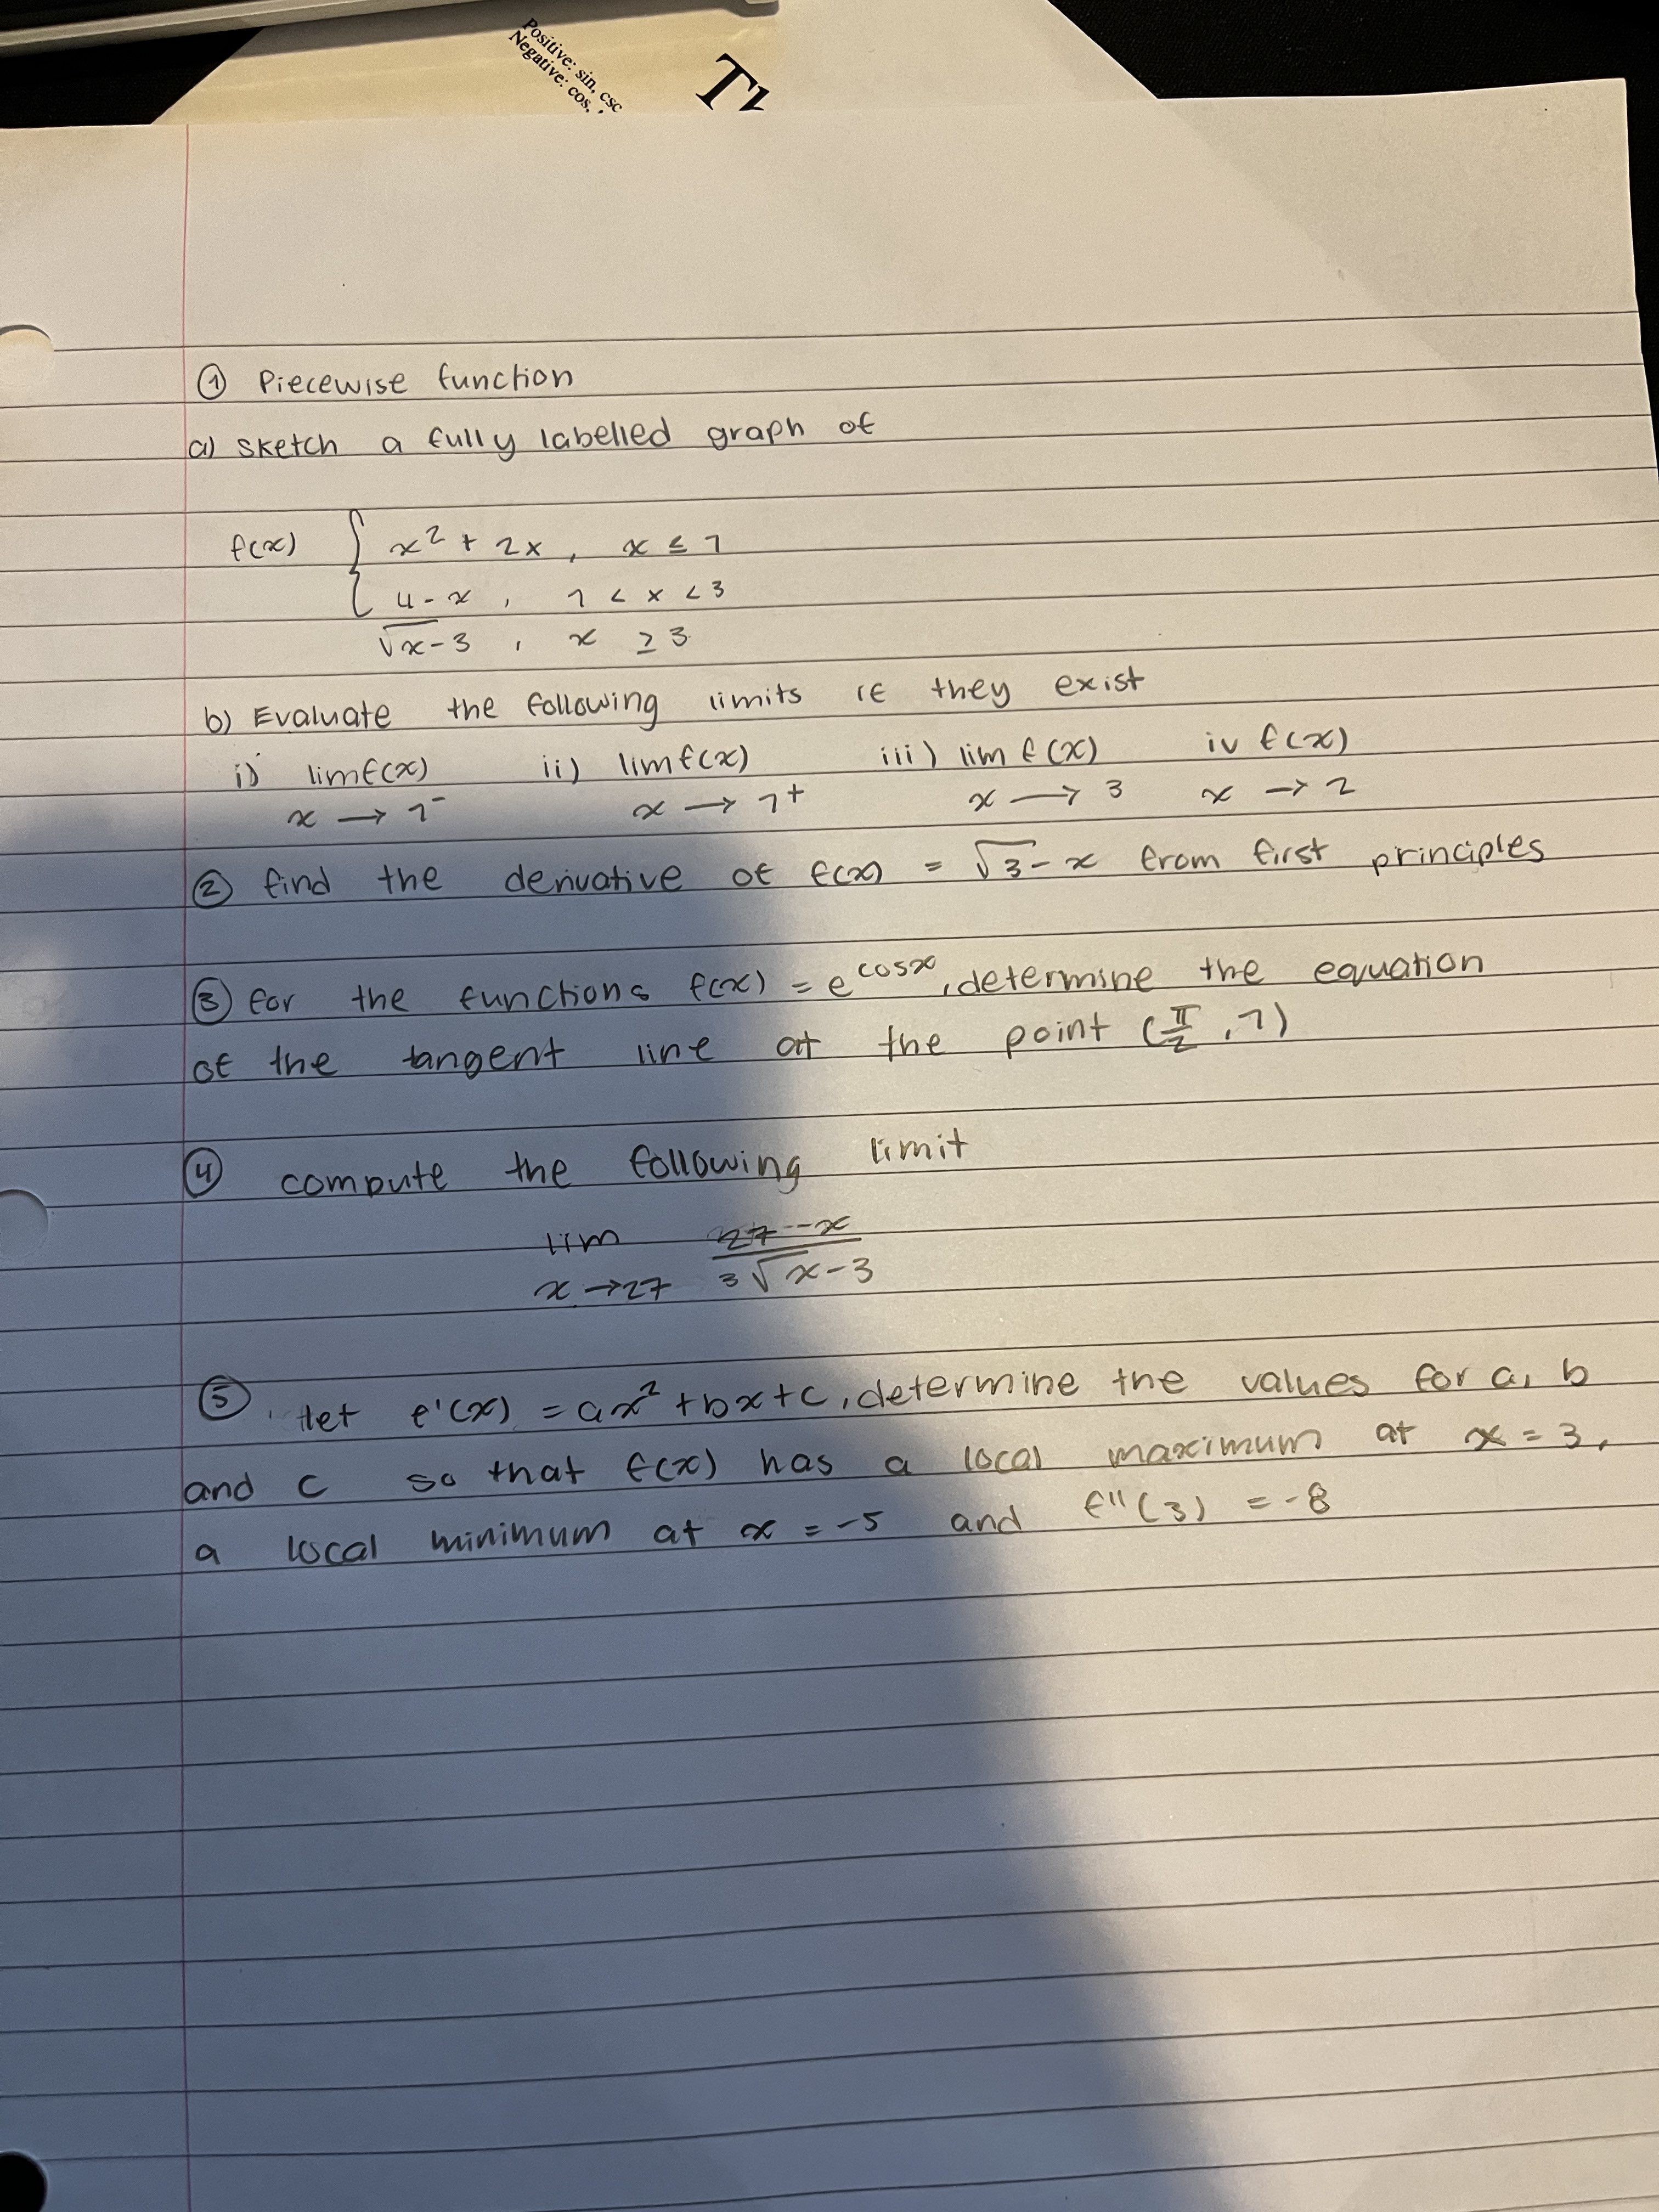 Positive: sin, csc
Negative: cos,
① Piecewise function
a) sketch a fully labelled graph of
f(x) { x² + 2x, x ≤ 1
4 - x, 1 < x < 3
√x-3, x ≥ 3
b) Evaluate the following limits if they exist
i) lim f(x) ii) lim f(x) iii) lim f(x) iv f(x)
x → 1⁻ x → 1⁺ x → 3 x → 2
② find the derivative of f(x) = √3-x from first principles
③ for the functions f(x) = e^cosx, determine the equation
of the tangent line at the point (π/2, 1)
④ compute the following limit
lim 27-x
x→27 3√x-3
⑤ let f'(x) = ax² + bx + c, determine the values for a, b
and c so that f(x) has a local maximum at x = 3,
a local minimum at x = -5 and f''(3) = -8